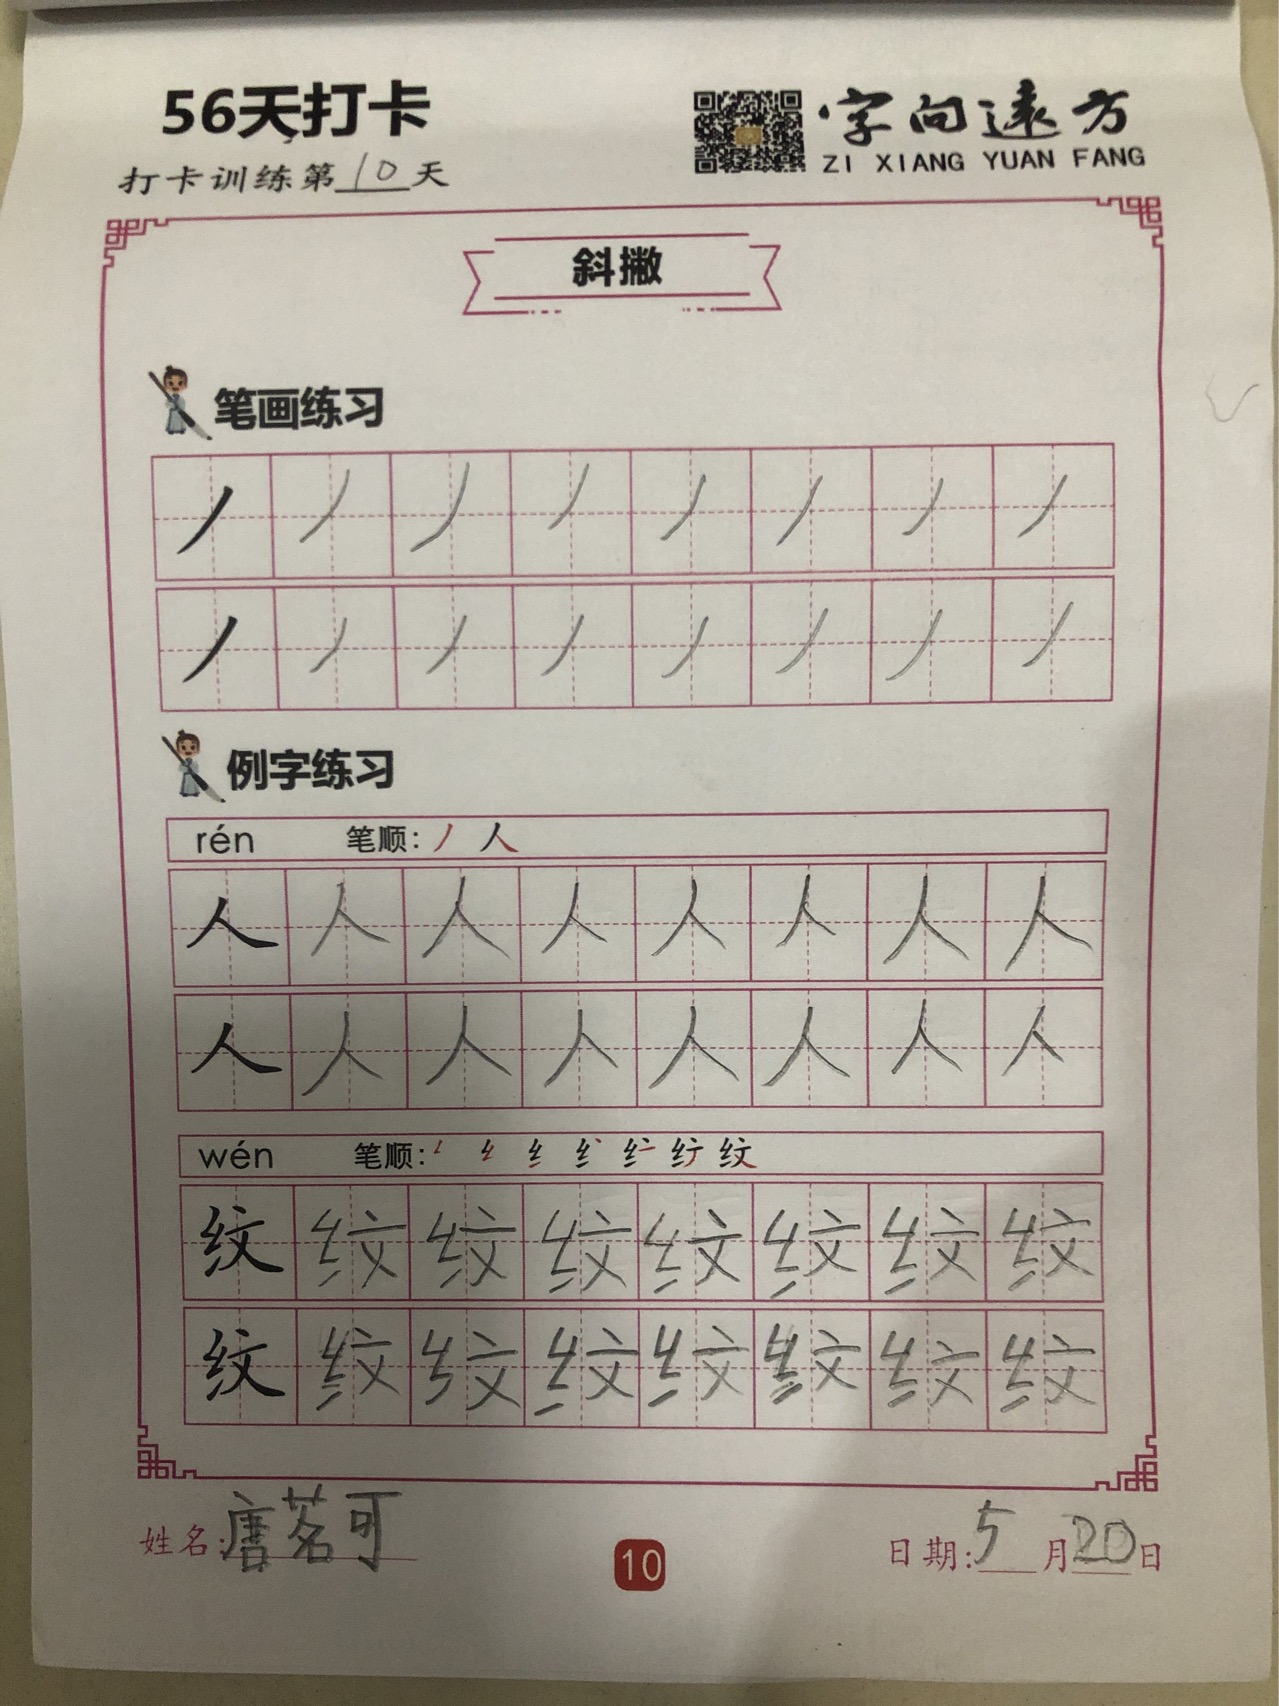 56天打卡
字向远方
ZI XIANG YUAN FANG
打卡训练第10天
斜撇
笔画练习
丿丿丿丿丿丿丿丿
丿丿丿丿丿丿丿丿
例字练习
rén 笔顺:丿人
人人人人人人人人
人人人人人人人人
wén 笔顺: 纹
纹纹纹纹纹纹纹纹
纹纹纹纹纹纹纹纹
姓名:唐茗可
10
日期:5月20日